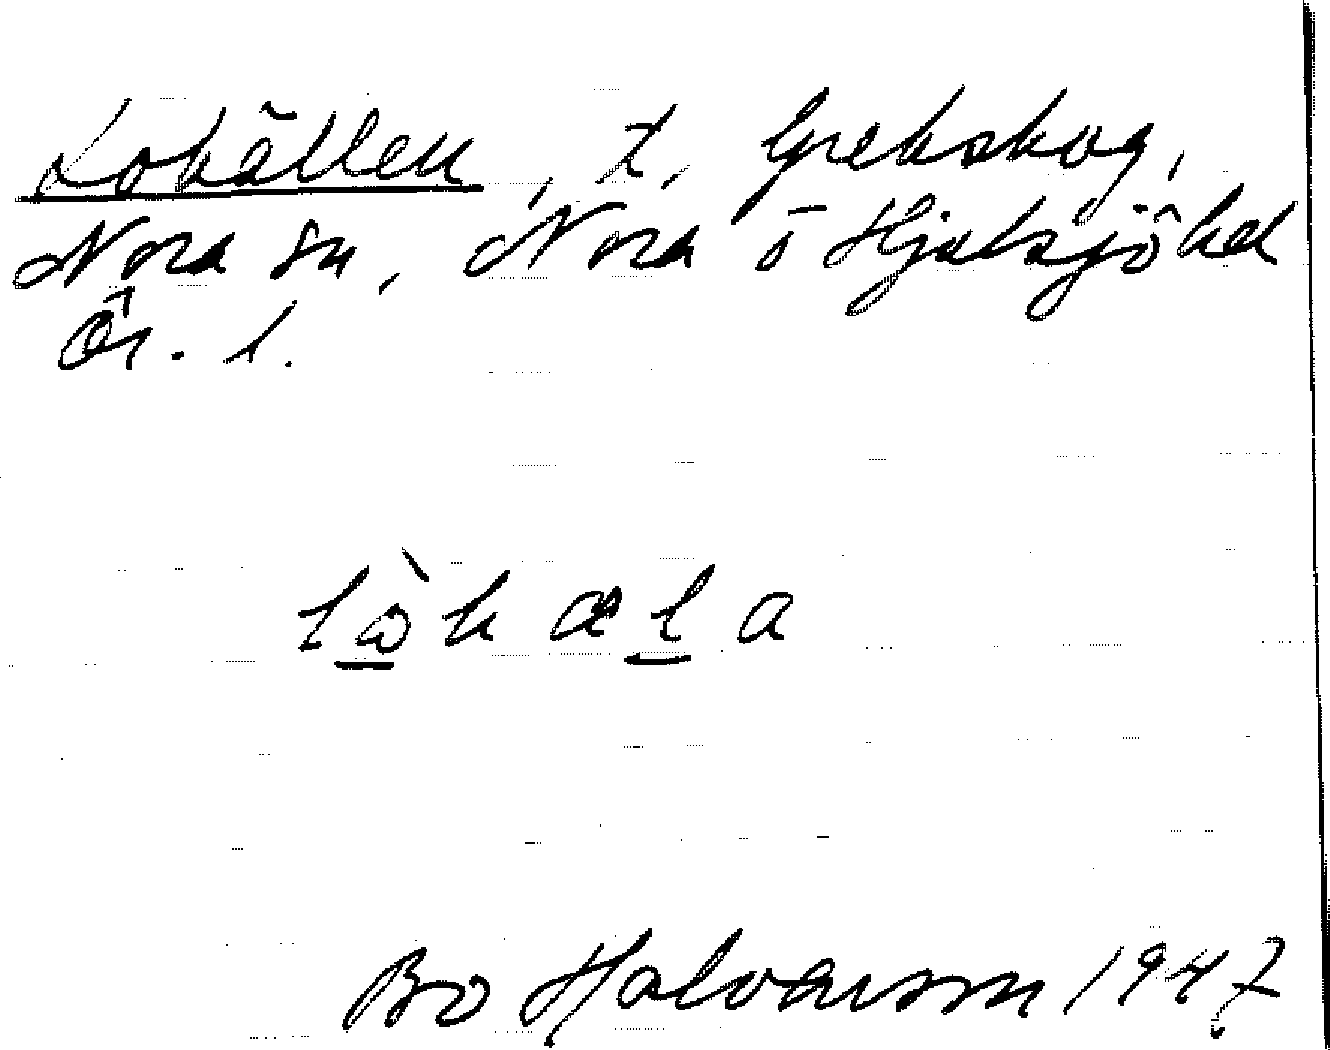 Lokällen, t, Grekskog,
Nora sn, Nora ö Hjulsjö hd
Ör. l.
lò̱kæḻa
Bo Halvarson 1947